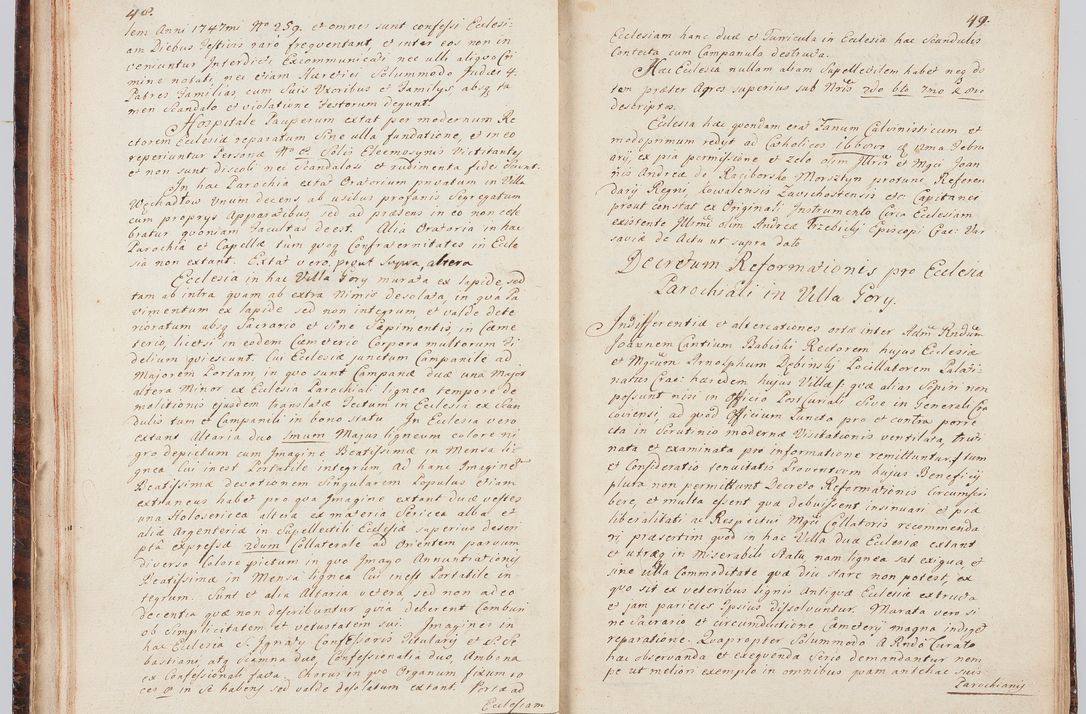 48.
lem Anni 1747mi No 259. et omnes sunt confessi Ecclesi-
am Diebus Festivis raro freqventant, et inter eos non in
veniuntur Interdicti Excommunicati nec ulli aliqvo Cri
mine notati, nec etiam Hæretici Solummodo Judæi 4.
Patres Familias, cum Suis Uxoribus et Familijs, absq ta
men Scandalo et violatione Festorum degunt.
Hospitale Pauperum extat per modernum Re
ctorem Ecclesiæ reparatum Sine ulla fundatione, et in eo
reperiuntur Personæ No Solis Eleemosynis Victitantes
et non sunt discoli nec Scandalosi et rudimenta fidei
In hac Parochia extat Oratorium privatum in Villa
Węchadłow Unum decens, ab usibus profanis Segregatum
cum proprijs Apparatibus, sed ad præsens in eo non cele
bratur qvoniam facultas deest. Alia Oratoria in hac
Parochia et Capellæ tum qvoq Confraternitates in Eccle
sia non extant. Extat vero, prout Supra, altera
Ecclesia in hac Villa Gory murata ex lapide, sed
tam ab intra qvam ab extra Nimis desolata, in qva Pa
vimentum ex lapide sed non integrum et valde dete
rioratum absq Sacrario et Sine Sæpimentis, in Cæme
terio, licet in eodem Cæmeterio Corpora multorum Fi
delium qviescunt. Cui Ecclesiæ junctum Campanile ad
Majorem Portam in qvo sunt Campanæ duæ una Major
altera Minor ex Ecclesia Parochiali lignea tempore de
molitionis ejusdem translatæ Tectum in Ecclesia ex Scan
dulis tum et Campanili in bono Statu. In Ecclesia vero
extant Altaria duo 1mum Majus ligneum colore ni
gro depictum cum Imagine Beatissimæ in Mensa li
gnea Cui inest Portatile integrum, Ad hanc Imagine
Beatissimæ devotionem Singularem Populus etiam
extraneus habet pro qva Imagine extant duæ vestes
una Holosericea altera ex materia Sericea alba et
aliæ Argenteria in Supellectili Ecclesiæ superius descri
ptâ expressæ 2dum Collaterale ad Orientem parvum
diverso Colore pictum in qvo Imago Annuntiationis
Beatissimæ in Mensa lignea Cui inest Portatile in-
tegrum. Sunt et alia Altaria vetera sed non adeo
decentia qvæ non describuntur qvia deberent Comburi
ob Simplicitatem et vetustatem sui. Imagines in
hac Ecclesia S. Ignatij Confessoris Titularis et S. Se
bastiani, atq Scamna duo, Confessionalia duo, Ambona
ex Confessionali facta. Chorus in qvo Organum fixum
in se habens sed valde desolatum extant. Portæ ad
Ecclesiam

49.
Ecclesiam hanc duæ et Turricula in Ecclesia hac Scandulis
Contecta cum Campanula destructa.
Hæc Ecclesia nullam aliam Supellectilem habet neq do
tem præter Agros superius sub Nris 2do 6to 7mo
descriptos.
Ecclesia hæc qvondam erat Fanum Calvinisticum et
modo primum redijt ad Catholicos 1660vo Febru
arij, ex pia permissione et zelo olim Illmi et Mgci Joan
nis Andreæ de Raciborsko Morsztyn protunc Referen
darij Regni Kowalensis Zawichostensis etc Capitanei
prout constat ex Originali Instrumento Circa Ecclesiam
existente Illmi olim Andreæ Trzebicky Episcopi Crac: Var
saviæ de Actu ut supra dato
Decretum Reformationis pro Ecclesia
Parochiali in Villa Gory.
Indifferentiæ et altercationes ortæ inter Adm Rndum
Joannem Cantium Babiski Rectorem hujus Ecclesiæ
et Mgcum Arnolphum Dębinski Pocillatorem Palati-
natus Crac: hæredem hujus Villæ, qvæ alias Sopiri non
possunt nisi in Officio Post Curiali Sive in Generali Cra
coviensi, ad qvod Officium Puncta pro et contra porre
cta in Scrutinio modernæ Visitationis ventilata, truti
nata et examinata pro informatione remittuntur, tum
et Consideratio tenuitatis Proventuum hujus Beneficij
plura non permittunt Decreto Reformationis Circumscri
bere, et multa essent qvæ debuissent insinuari et piæ
liberalitati ac Respectui Mgci Collatoris recommenda
ri præsertim qvod in hac Villa duæ Ecclesiæ extant
et utraq in miserabili Statu, nam lignea sat exigua, et
sine ulla Commoditate qvæ diu stare non potest, ex
qvo sit ex veteribus lignis Antiquæ Ecclesiæ extructa
et jam parietes Ipsius dissolvuntur. Murata vero si
ne Sacrario et circumductione Cæmeterij magna indiget
reparatione. Qvapropter Solummodo A Rndo Curato
hæc observanda et exeqvenda Serio demandantur nem
pe ut meliori exemplo in omnibus qvam antehac suis
Parochianis